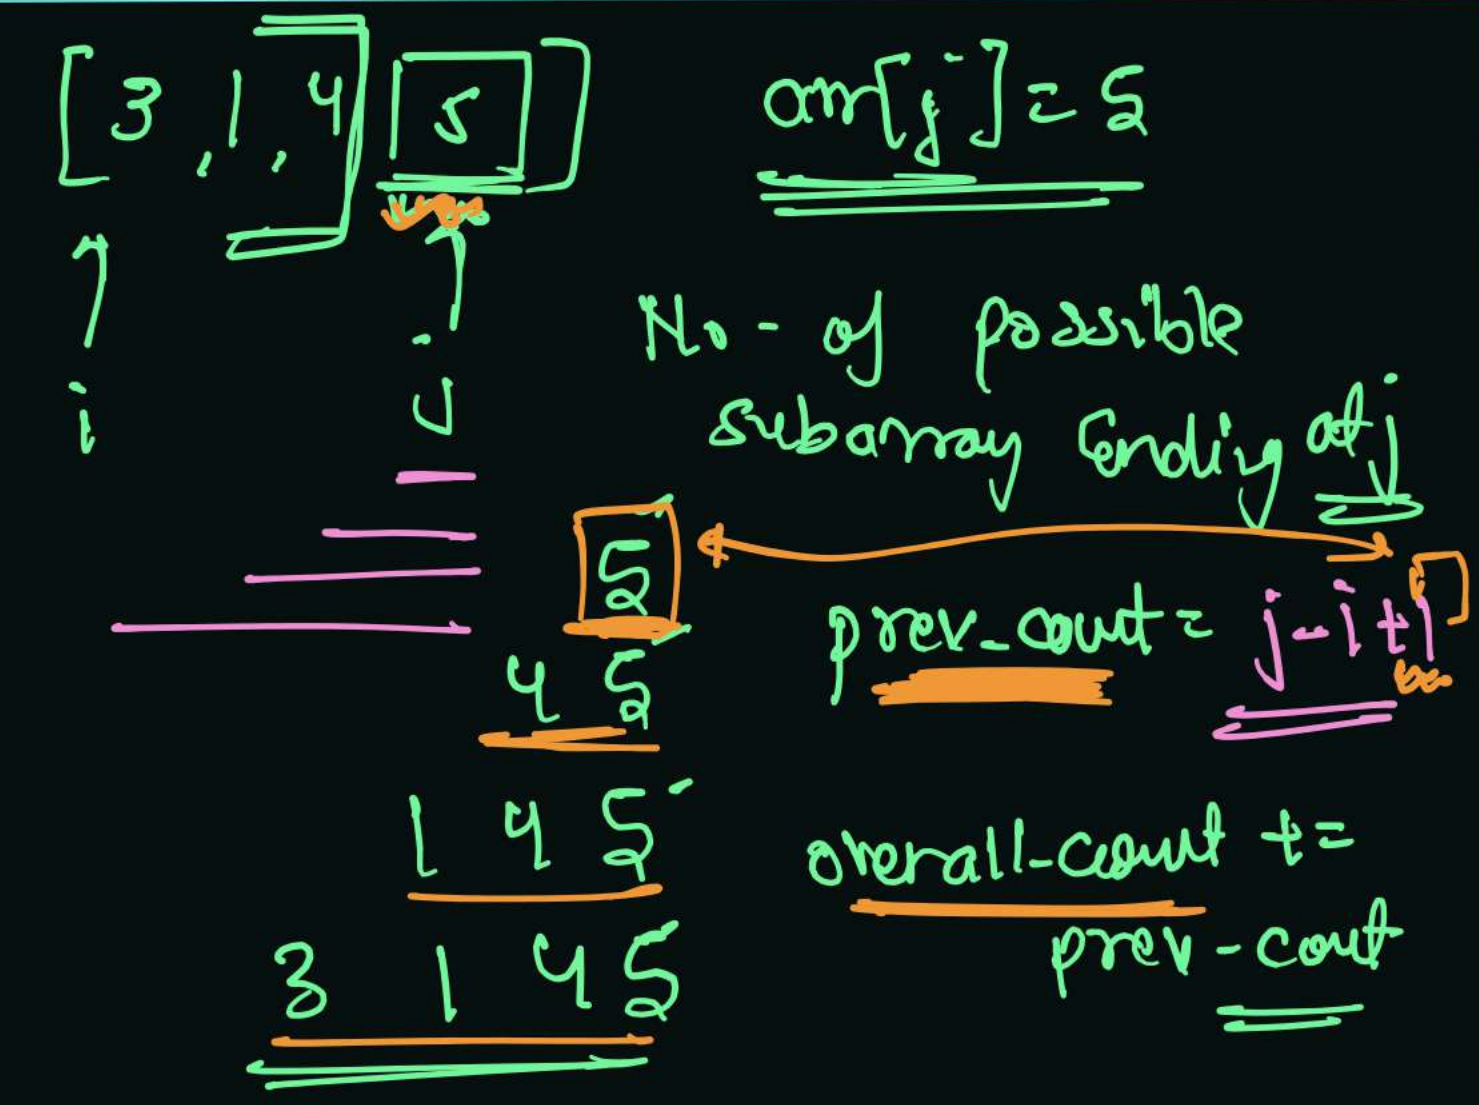 [ 3 , 1 , 4 5 ]
arr[j] = 5
i
j
No - of possible
subarray Ending at j
5
4 5
1 4 5
3 1 4 5
prev_count = j - i + 1
overall-count +=
prev - cout